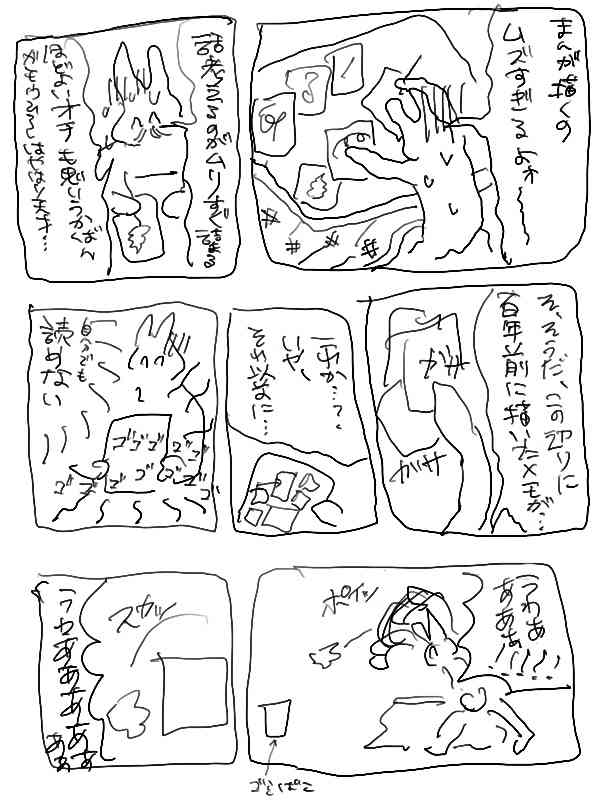 まんが描くの
ムズすぎるよォ〜〜
話考えるのがムリすぎ
ほどよいオチも思いうかばん
そ、そうだ、この辺りに
百年前に描いたメモが…
ガサ
ガサ
これか…？
いや、
それ以前に…
自分でも
読めない
ゴゴゴ
ゴゴ
ゴゴ
ゴゴゴ
うわあ
あああ
!!!!!
ポイッ
ゴミばこ
スカッ
うわああああああ
ああ